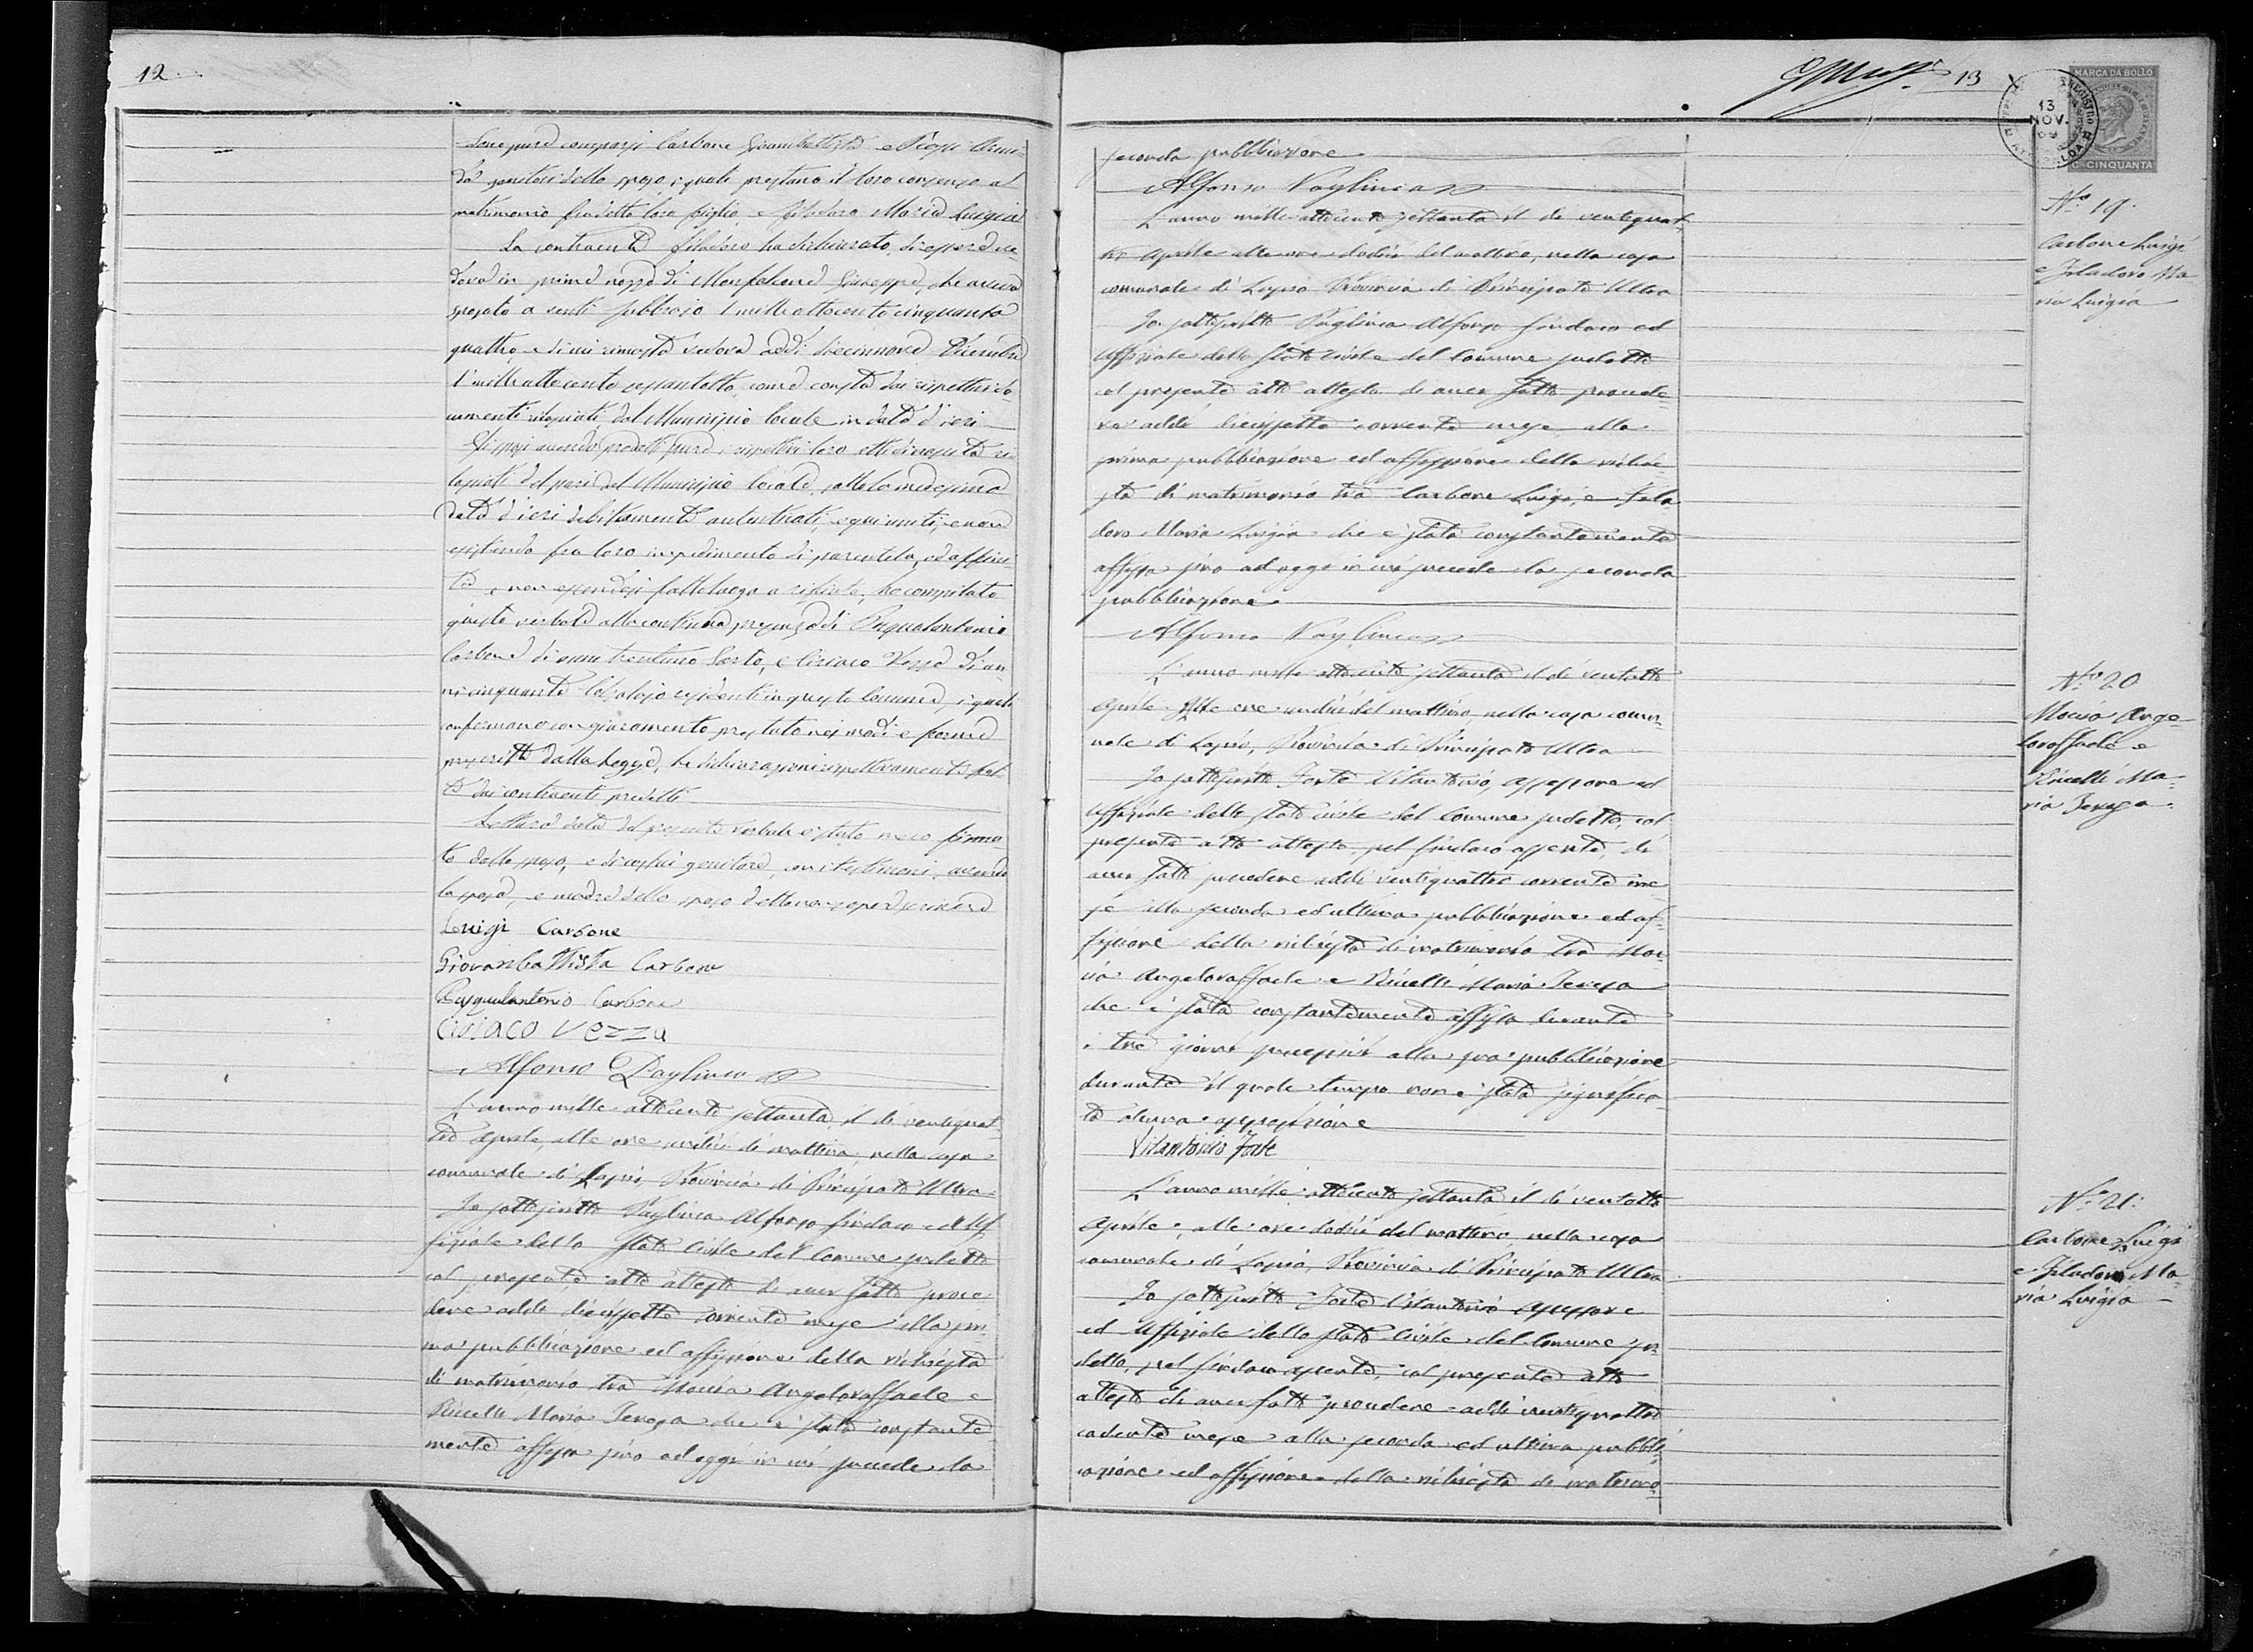 12
Sono pure comparsi Carbone Giambattista e
genitori dello sposo, i quali prestano il loro consenso al
matrimonio fra detto loro figlio e Filadoro Maria Luigia
La contraente Filadoro ha dichiarato di essere ve-
dova in prime nozze di Giuseppe, che aveva
sposato a venti febbrajo 1mille ottocento cinquanta
quattro, e di cui rimasta vedova addì diecinnove Dicembre
1mille ottocento sessantotto, come consta dai rispettivi do-
cumenti rilasciati dal Municipio locale in data d'ieri
Gli sposi avendo prodotti pure i rispettivi loro atti di nascita ri-
lasciati del pari dal Municipio locale, sotto la medesima
data d'ieri debitamente autenticati, e qui uniti, e non
esistendo fra loro impedimento di parentela, ed affini-
tà, e non essendosi fatto luogo a rifiuto, ho compilato
questo verbale alla continua presenza di Pasqualantonio
Carbone di anni trentuno Sarto, e Ciriaco Vezza di an-
ni cinquanta Calzolajo residenti in questo Comune, i quali
confermano con giuramento prestato nei modi e forme
prescritte dalla legge, le dichiarazioni rispettivamente fat-
te dai contraenti predetti
Lettura data del presente verbale è stato meco firma-
to dallo sposo, e di costui genitore, coi testimoni, avendo
la sposa, e madre dello sposo detto non saper scrivere
Luigi Carbone
Giovanbattista Carbone
Pasqualantonio Carbone
Ciriaco Vezza
Alfonso Paglinca
L'anno mille ottocento settanta, il dì ventiquat-
tro Aprile, alle ore undici di mattina, nella casa
comunale di Lapio, Provincia di Principato Ultra
Io sottoscritto Paglinca Alfonso Sindaco ed Uf-
fiziale dello Stato Civile del Comune sudetto
col presente atto attesto di aver fatto proce-
dere addì diecissette corrente mese alla pri-
ma pubblicazione ed affissione della richiesta
di matrimonio tra Moccia Angeloraffaele e
Ricelli Maria Teresa che è stata constante-
mente affissa sino ad oggi in cui succede la
13
MARCA DA BOLLO
13
NOV.
69
C. CINQUANTA
seconda pubblicazione
Alfonso Paglinca
No 19.
Carbone Luigi
e Filadoro Ma-
ria Luigia
L'anno mille ottocento settanta il dì ventiquat-
tro Aprile alle ore dodici del mattino, nella casa
comunale di Lapio Provincia di Principato Ultra
Io sottoscritto Paglinca Alfonso Sindaco ed
Uffiziale dello Stato Civile del Comune sudetto
col presente atto attesto di aver fatto procede-
re addì diecissette corrente mese alla
prima pubblicazione ed affissione della richie-
sta di matrimonio tra Carbone Luigi, e Fila-
doro Maria Luigia che è stata constantemente
affissa sino ad oggi in cui succede la seconda
pubblicazione
Alfonso Paglinca
No 20
Moccia Ange-
loraffaele e
Ricelli Ma-
ria Teresa
L'anno mille ottocento settanta il dì ventotto
Aprile alle ore undici del mattino, nella casa comu-
nale di Lapio, Provincia di Principato Ultra
Io sottoscritto Forte Vitantonio, Assessore ed
Uffiziale dello Stato civile del Comune sudetto, col
presente atto attesto, pel Sindaco assente, di
aver fatto procedere addì ventiquattro corrente me-
se alla seconda ed ultima pubblicazione ed af-
fissione della richiesta di matrimonio tra Moc-
cia Angeloraffaele e Ricelli Maria Teresa
che è stata constantemente affissa durante
i tre giorni successivi alla sua pubblicazione
durante il quale tempo non è stata significa-
ta alcuna opposizione
Vitantonio Forte
No 21.
Carbone Luigi
e Filadoro Ma-
ria Luigia
L'anno mille ottocento settanta il dì ventotto
Aprile, alle ore dodici del mattino nella casa
comunale di Lapio, Provincia di Principato Ultra
Io sottoscritto Forte Vitantonio Assessore
ed Uffiziale dello Stato Civile del Comune su-
detto, pel Sindaco assente, col presente atto
attesto di aver fatto procedere addì ventiquattro
cadente mese alla seconda ed ultima pubbli-
cazione ed affissione della richiesta di matrimo-